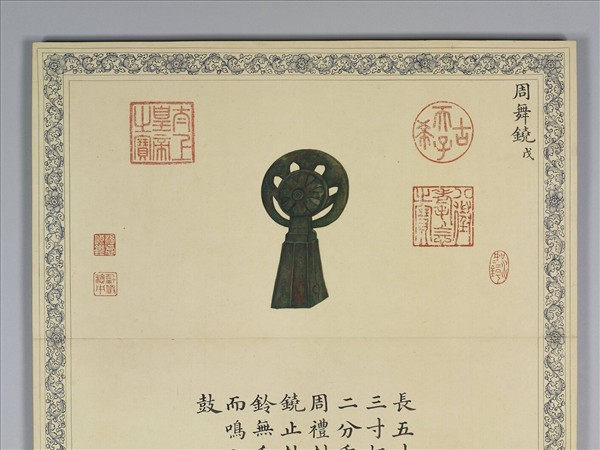 周舞鐃 戊
古希天子
八徵耄念之寶
太上皇帝之寶
長五
三寸
二分
周禮
鐃止
鈴無
而鳴
鼓